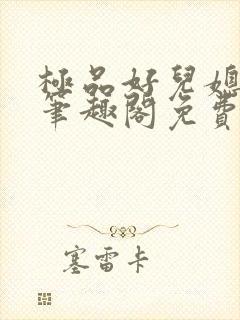 極品好兒媳
筆趣閣免費
塞雷卡